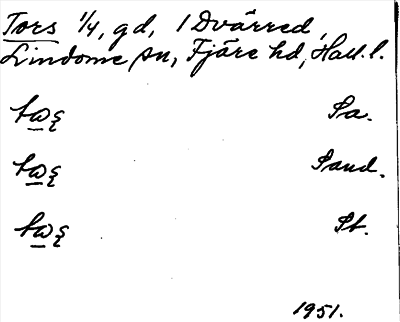 Tors 1/4, gd, i Dvärred,
Lindome sn, Fjäre hd, Hall. l.
Sa.
Sand.
St.
1951.